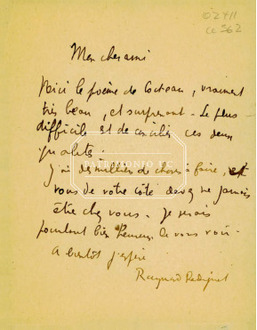 02911
Mon cher ami
Voici le poème de Cocteau, vraiment
très beau, et surprenant. Le plus
difficile est de concilier ces deux
qualités.
J'ai des milliers de choses à faire, et
vous de votre côté devez ne jamais
être chez vous. Je serais
pourtant bien heureux de vous voir.
A bientôt j'espère
Raymond Radiguet